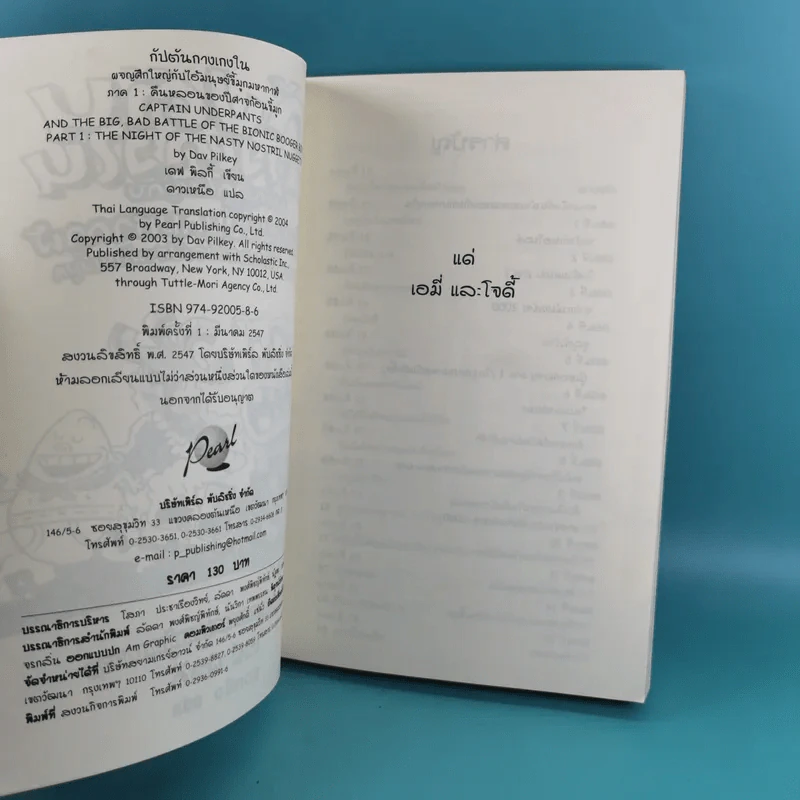 กัปตันกางเกงใน
ผจญศึกใหญ่กับไอ้มนุษย์ขี้มูกมหากาฬ
ภาค 1 : คืนหลอนของปีศาจก้อนขี้มูก
CAPTAIN UNDERPANTS
AND THE BIG, BAD BATTLE OF THE BIONIC BOOGER
PART 1 : THE NIGHT OF THE NASTY NOSTRIL
by Dav Pilkey
เดฟ พิลกี้ เขียน
ดาวเหนือ แปล
Thai Language Translation copyright © 2004
by Pearl Publishing Co., Ltd.
Copyright © 2003 by Dav Pilkey. All rights reserved.
Published by arrangement with Scholastic Inc.,
557 Broadway, New York, NY 10012, USA
through Tuttle-Mori Agency Co., Ltd.
ISBN 974-92005-8-6
พิมพ์ครั้งที่ 1 : มีนาคม 2547
สงวนลิขสิทธิ์ พ.ศ. 2547 โดยบริษัทเพิร์ล พับลิชชิ่ง จำกัด
ห้ามลอกเลียนแบบไม่ว่าส่วนหนึ่งส่วนใดของหนังสือ
นอกจากได้รับอนุญาต
Pearl
บริษัทเพิร์ล พับลิชชิ่ง จำกัด
146/5-6 ซอยสุขุมวิท 33 แขวงคลองตันเหนือ เขตวัฒนา
โทรศัพท์ 0-2530-3651, 0-2530-3661 โทรสาร
e-mail : p_publishing@hotmail.com
ราคา 130 บาท
บรรณาธิการบริหาร โสภา ประชาเรืองวิทย์, ลัดดา
บรรณาธิการสำนักพิมพ์ ลัดดา
จรกลิ่น ออกแบบปก Am Graphic คอมพิวเตอร์
จัดจำหน่ายได้ที่ บริษัทสยามเกรย์ฮาวน์ จำกัด 146/5-6 ซอยสุขุมวิท 33
เขตวัฒนา กรุงเทพฯ 10110 โทรศัพท์ 0-2539-8827,
พิมพ์ที่ สงวนกิจการพิมพ์ โทรศัพท์ 0-2936-0991-6
แด่
เอมี่ และโจดี้